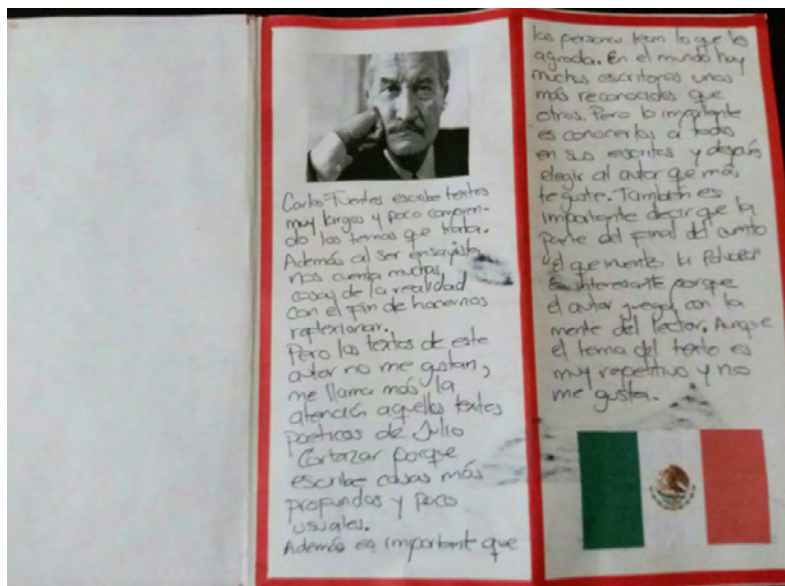 Carlos Fuentes escribe textos
muy largos y poco compren-
do los temas que trata.
Además al ser ensayista
nos cuenta muchas
cosas de la realidad
con el fin de hacernos
reflexionar.
Pero los textos de este
autor no me gustan,
me llama más la
atención aquellos textos
poeticos de Julio
Cortazar porque
escribe cosas más
profundas y poco
usuales.
Además es importante que
las personas lean lo que les
agrada. En el mundo hay
muchos escritores unos
más reconocidos que
otros. Pero lo importante
es conocerlos a todos
en sus escritos y después
elegir al autor que más
te guste. También es
importante decir que la
parte del final del cuento
"el que inventó la pólvora"
es interesante porque
el autor juega con la
mente del lector. Aunque
el tema del texto es
muy repetitivo y no
me gusta.